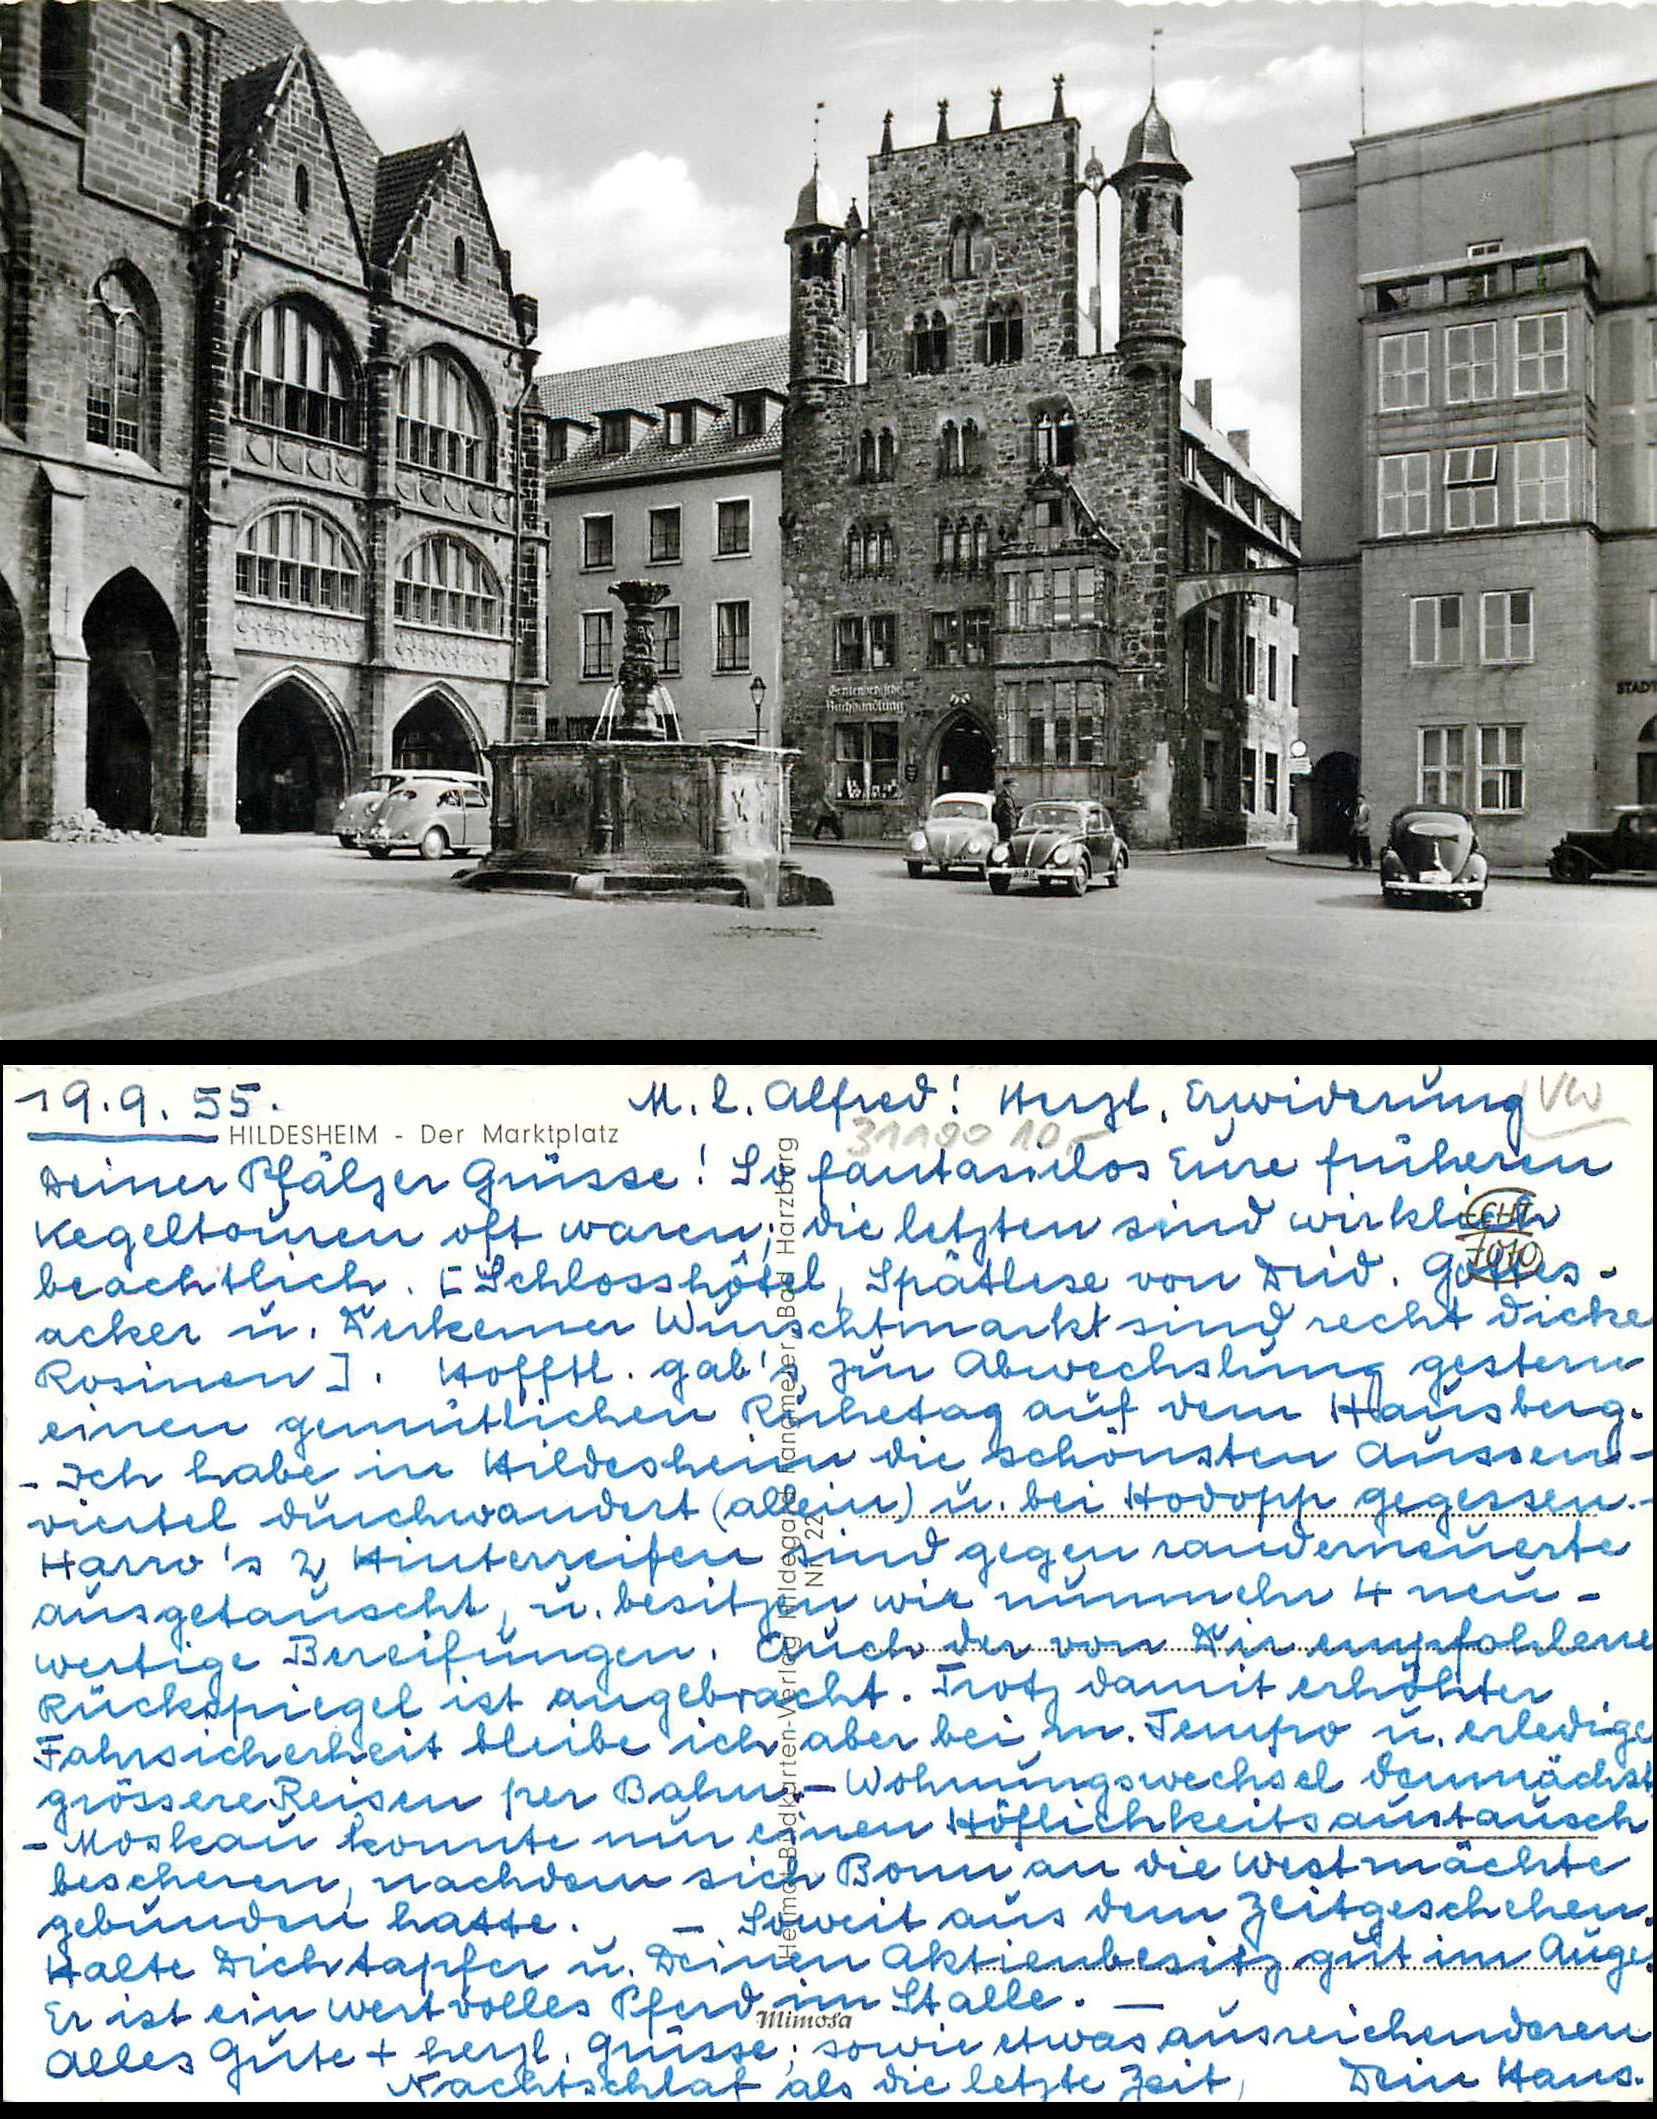 Gerstenberg'sche
Buchhandlung
STADT
19.9.55.
M. l. Alfred! Herzl. Erwiderung
VW
HILDESHEIM - Der Marktplatz
31190 10,-
Deiner Pfälzer Grüsse! So fantasielos Eure früheren
Kegeltouren oft waren; die letzten sind wirklich
ECHT
FOTO
beachtlich. [Schlosshôtel, Spätlese von Deid. Gottes-
acker u. Dürkemer Wurschtmarkt sind recht dicke
Rosinen]. Hofftl. gab's zur Abwechslung gestern
einen gemütlichen Ruhetag auf dem Hausberg.
- Ich habe in Hildesheim die schönsten Aussen-
viertel durchwandert (allein) u. bei Hodopp gegessen.-
Harro's 2 Hinterreifen sind gegen runderneuerte
ausgetauscht, u. besitzen wir nunmehr 4 neu-
wertige Bereifungen. Auch der von Dir empfohlene
Rückspiegel ist angebracht. Trotz damit erhöhter
Fahrsicherheit bleibe ich aber bei m. Tempo u. erledige
grössere Reisen per Bahn. - Wohnungswechsel demnächst
- Moskau konnte nur einen Höflichkeitsaustausch
bescheren, nachdem sich Bonn an die Westmächte
gebunden hatte. - Soweit aus dem Zeitgeschehen.
Halte Dich tapfer u. Deinen Aktienbesitz gut im Auge.
Er ist ein wertvolles Pferd im Stalle. -
Mimosa
Alles Gute + herzl. Grüsse; sowie etwas ausreichenderen
Nachtschlaf als die letzte Zeit, Dein Hans.
Heimat-Bildkarten-Verlag Hildegard Bad Harzburg
Nr. 22